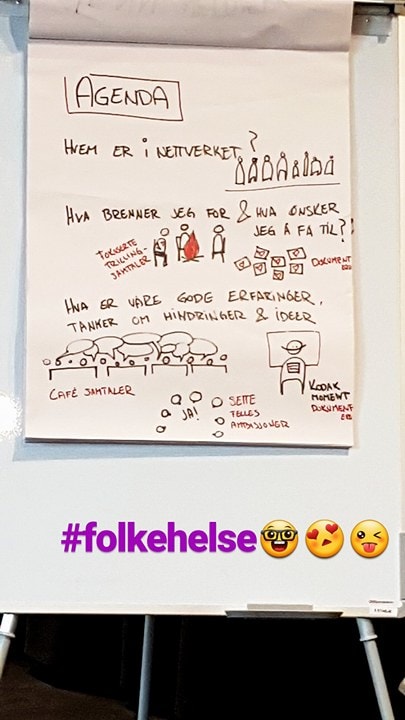 AGENDA
HVEM ER I NETTVERKET?
HVA BRENNER JEG FOR & HVA ØNSKER
JEG Å FÅ TIL?
FOKUSERTE
TRILLING-
SAMTALER
DOKUMENT
ERE
HVA ER VÅRE GODE ERFARINGER,
TANKER OM HINDRINGER & IDEER
CAFÉ SAMTALER
JA!
SETTE
FELLES
AMBISJONER
KODAK
MOMENT
DOKUMENT
ERE
#folkehelse🤓😍😜